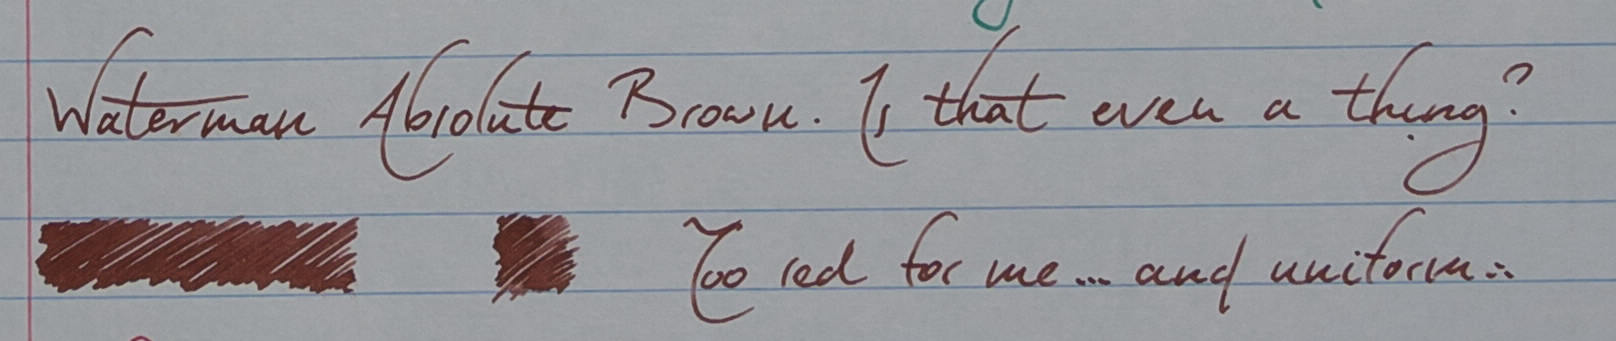 Waterman Absolute Brown. Is that even a thing?
Too red for me... and uniform...